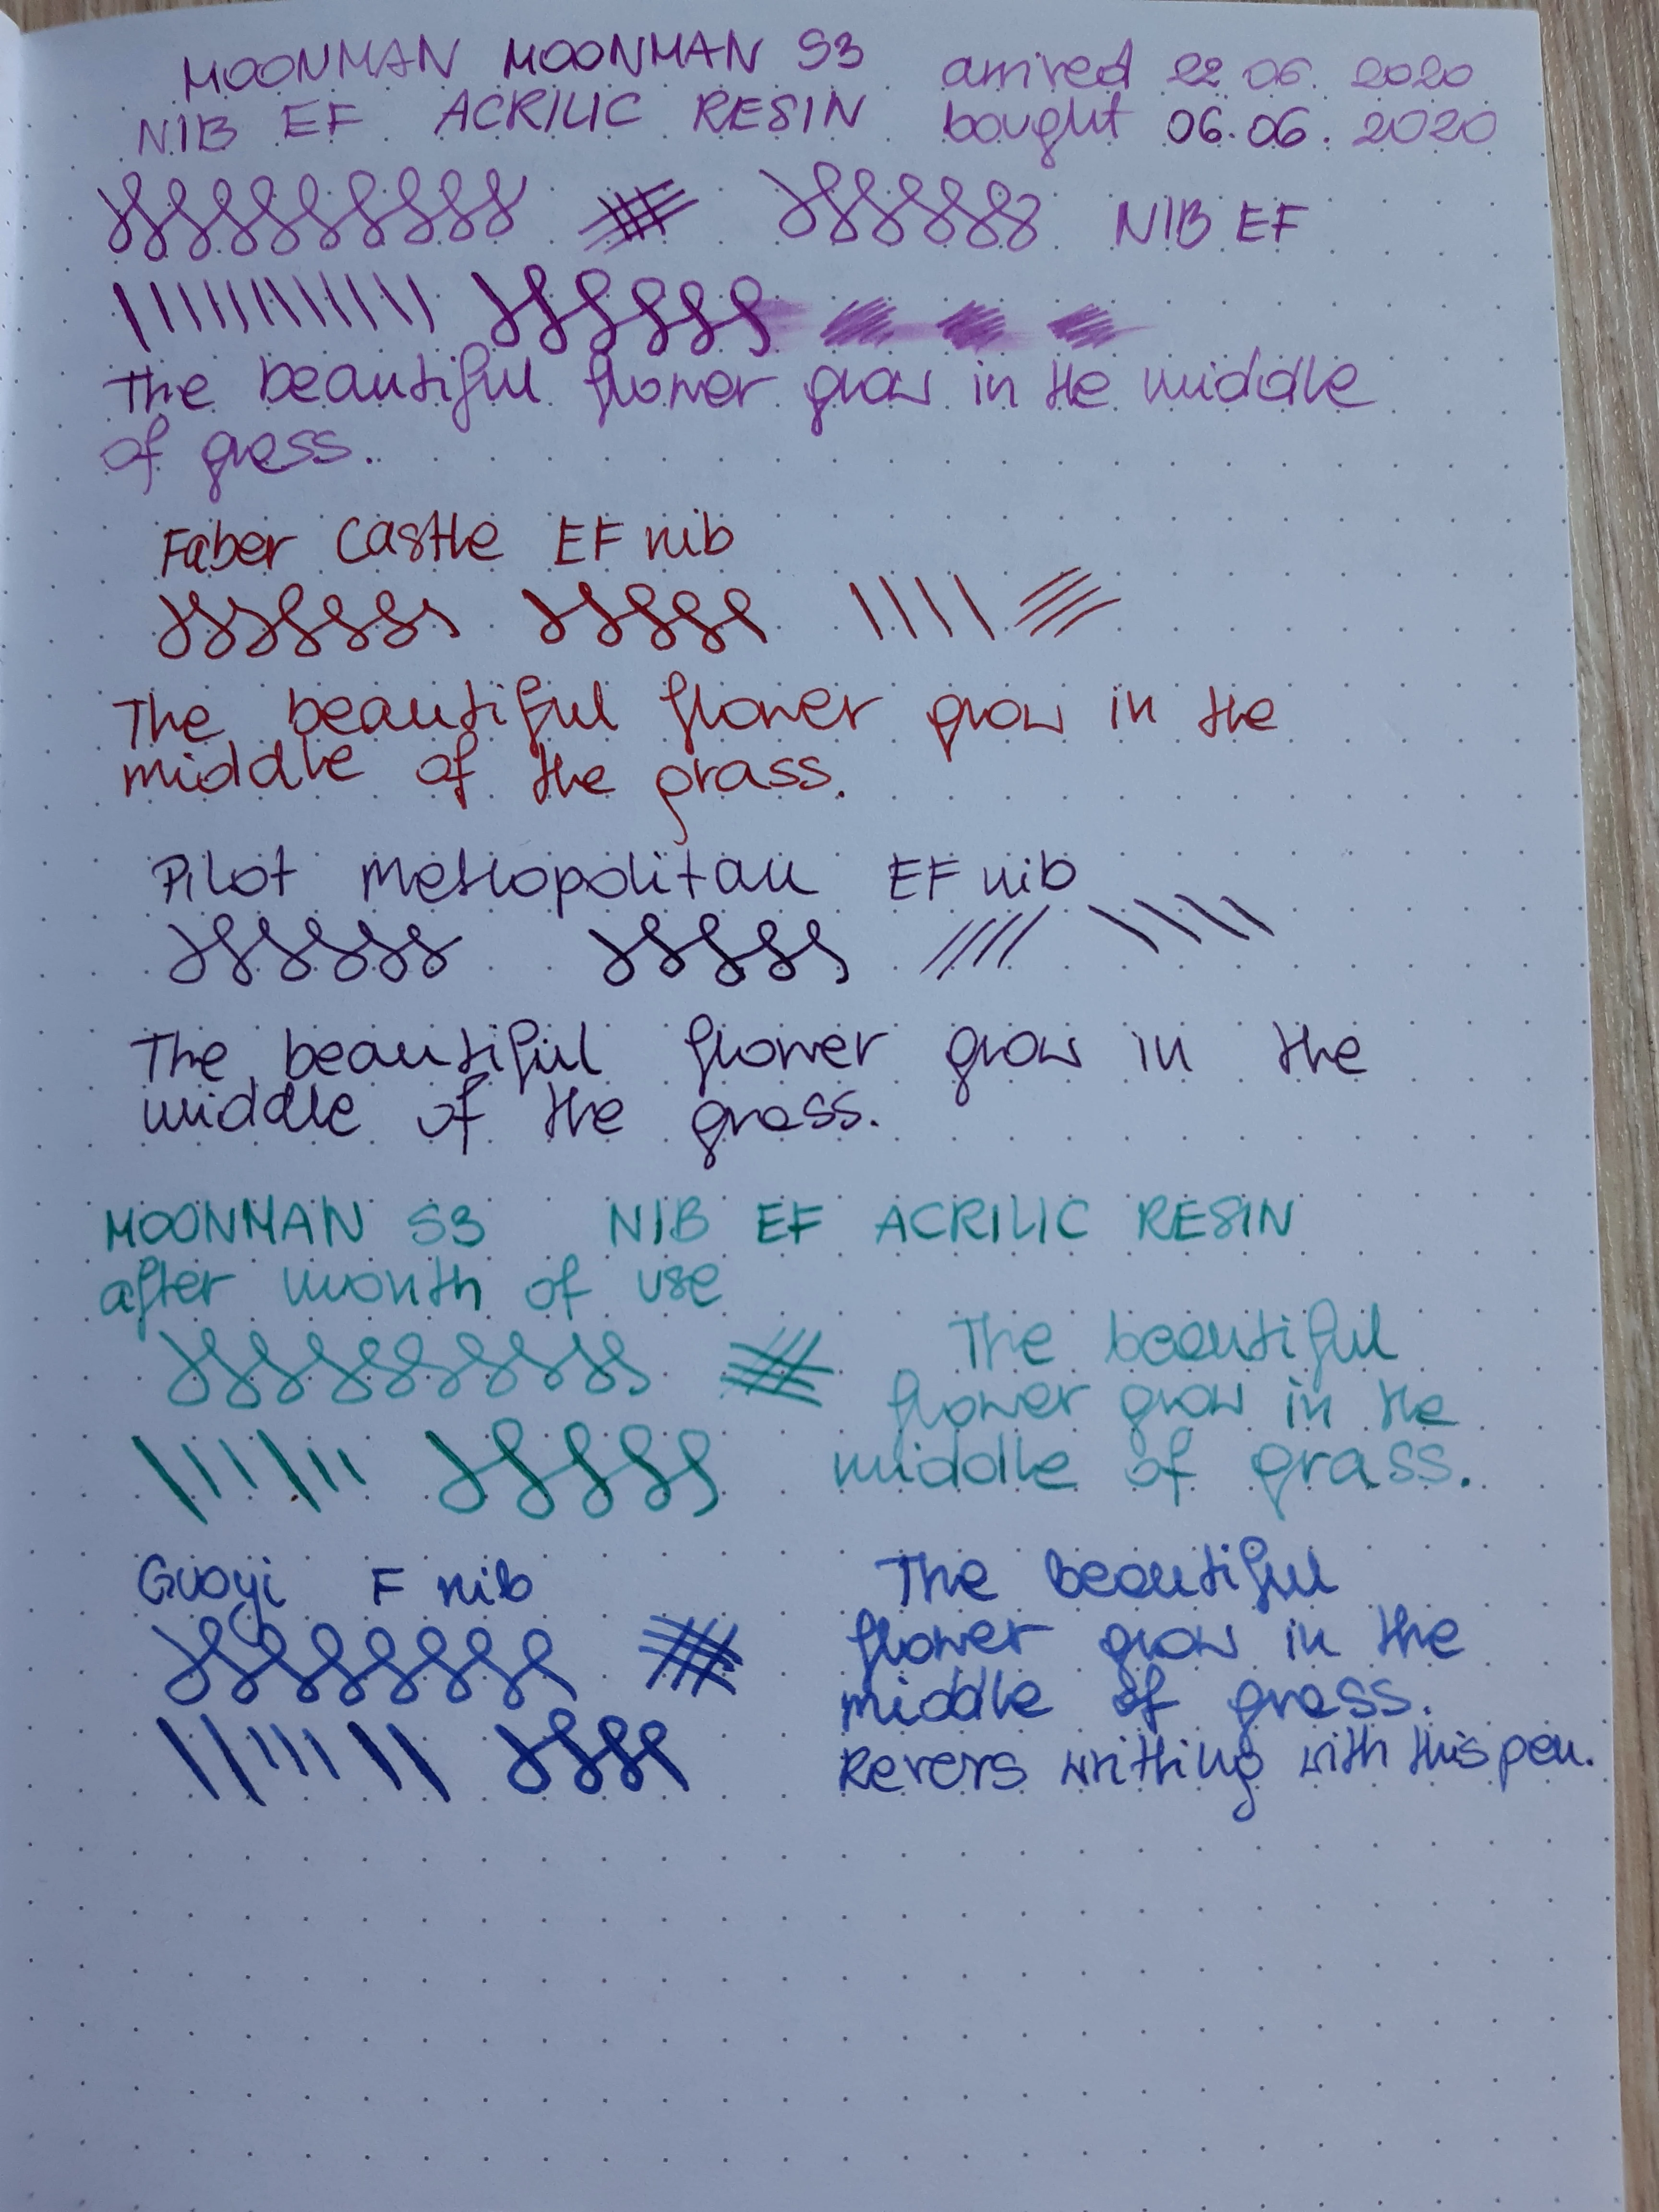 MOONMAN MOONMAN S3 arrived 22.06.2020
NIB EF ACRILIC RESIN bought 06.06.2020
NIB EF
The beautiful flower grow in the middle
of grass.
Faber Castle EF nib
The beautiful flower grow in the
middle of the grass.
Pilot metropolitan EF nib
The beautiful flower grow in the
middle of the grass.
MOONMAN S3 NIB EF ACRILIC RESIN
after month of use
The beautiful
flower grow in the
middle of grass.
Guoyi F nib
The beautiful
flower grow in the
middle of grass.
Revers writhing with this pen.